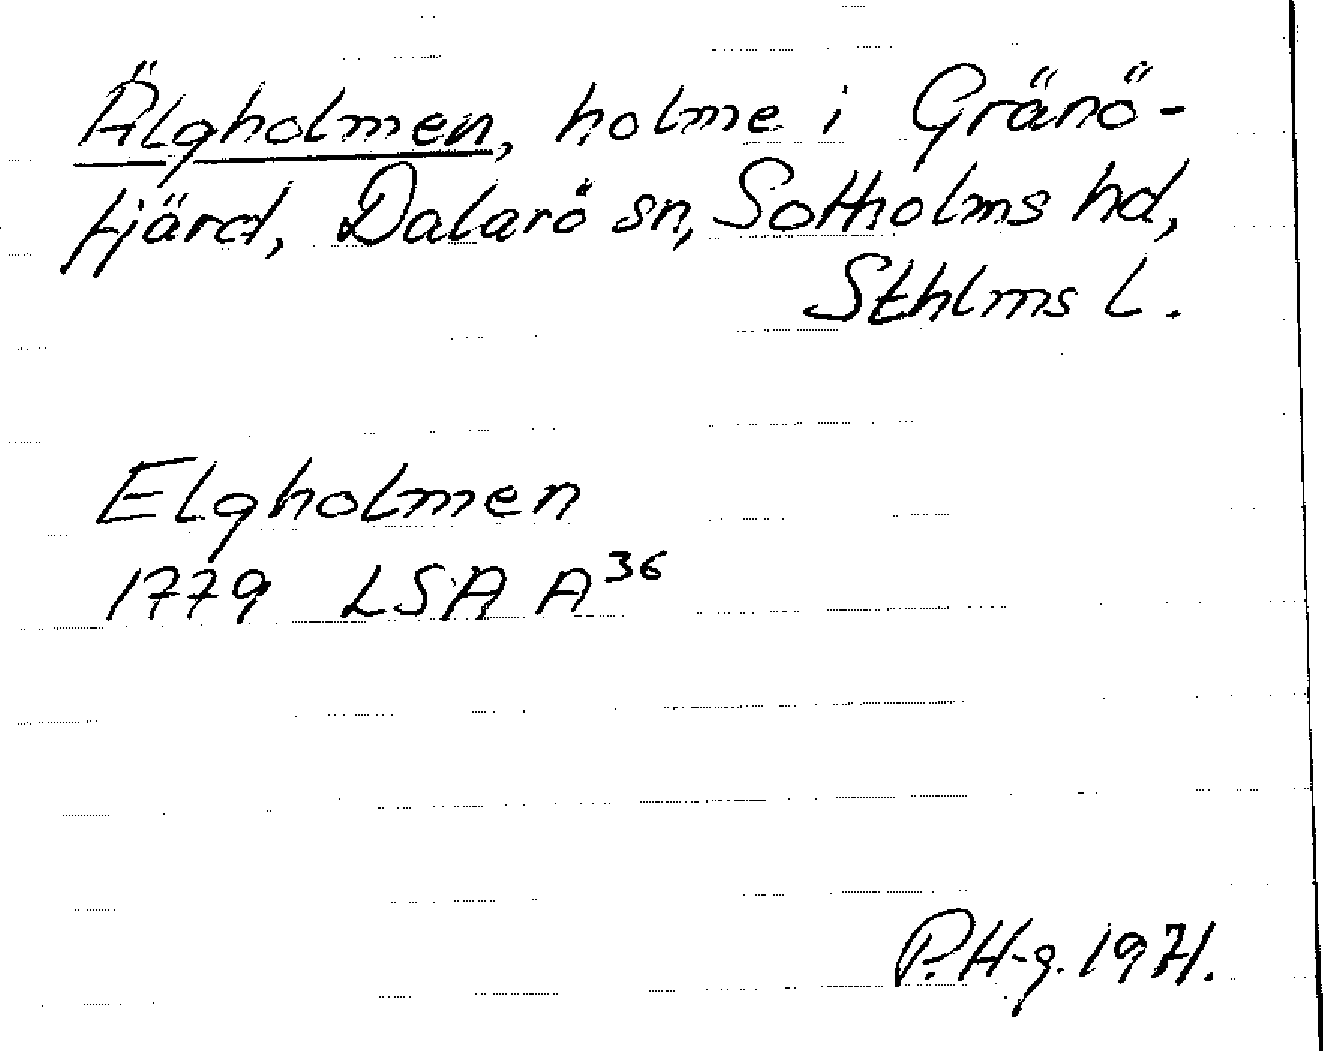 Älgholmen, holme i Gränö-
fjärd, Dalarö sn, Sotholms hd,
Sthlms l.
Elgholmen
1779 LSA A³⁶
P.H-g. 1971.